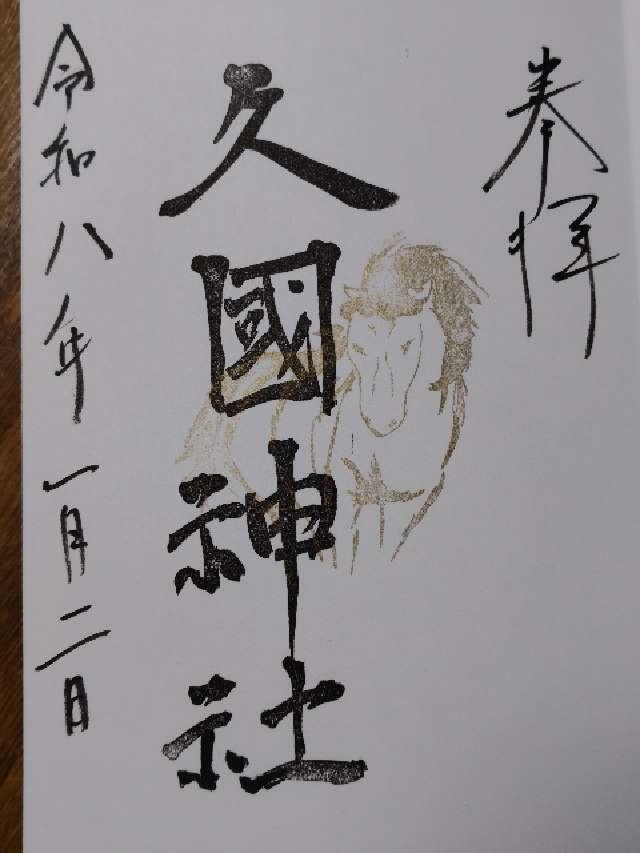 奉拝
久國神社
令和八年一月二日